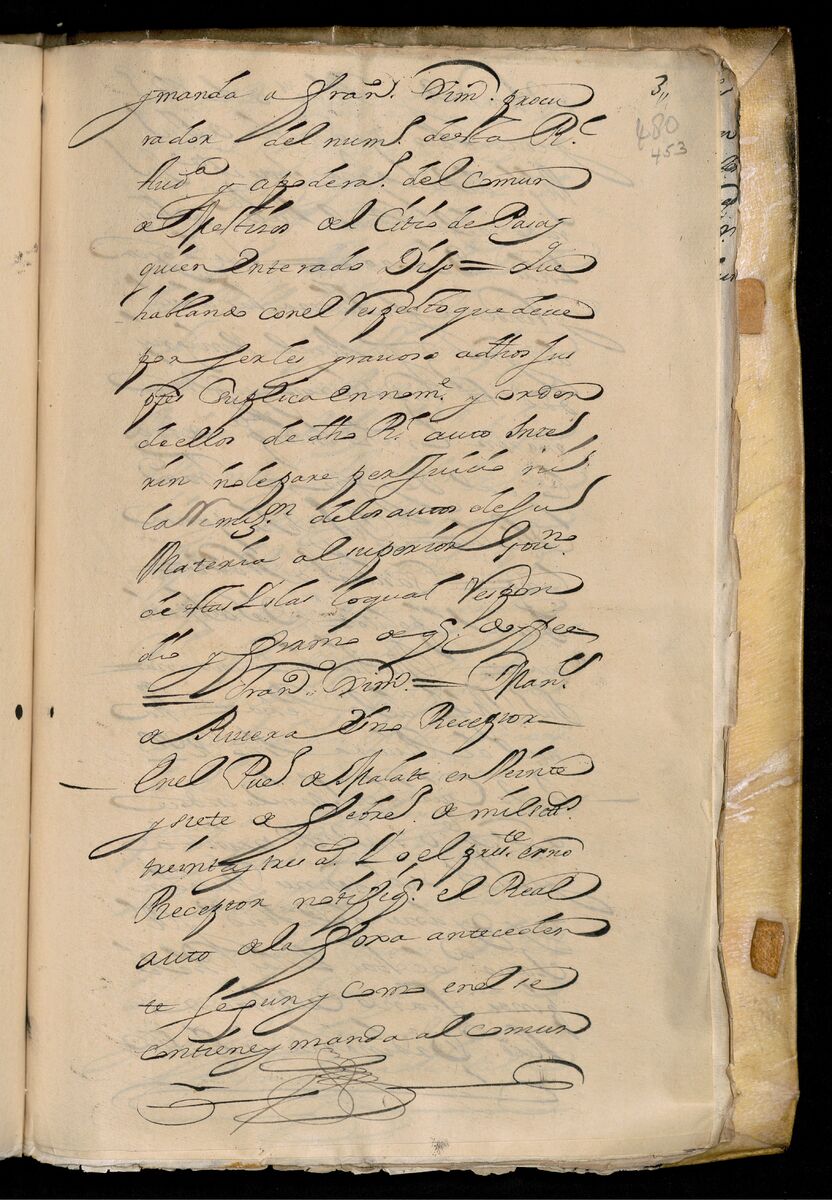 3,,
480
453
y manda a Fran.co Xim.s procu
rador del num.o desta R.l
Aud.a y apoderas. del Comun
de Mestizos del Citio de Pasay
quien Enterado Dijo = Que
hablando con el Respecto que deve
por serles gravoso a dhos sus
ptes suplica en nom.e y orden
de ellos de dho R.l auto Inte
rin no le pare perJuicio ni
la Remiz.n de los autos de su
Materia al superior Gov.no
de estas Yslas loqual Respon
dio y firmo de q.e doy fee
= Fran.co Xim.s = Man.l
de Rivera Ss.no Receptor
En el Pue.o de Malate en Veinte
y siete de Febre.o de mil set.s
treinta y tres a.s Yo el pres.te ess.no
Receptor notifiq.e el Real
auto de la foxa anteceden
te segun y como en el se
contiene y manda al comun